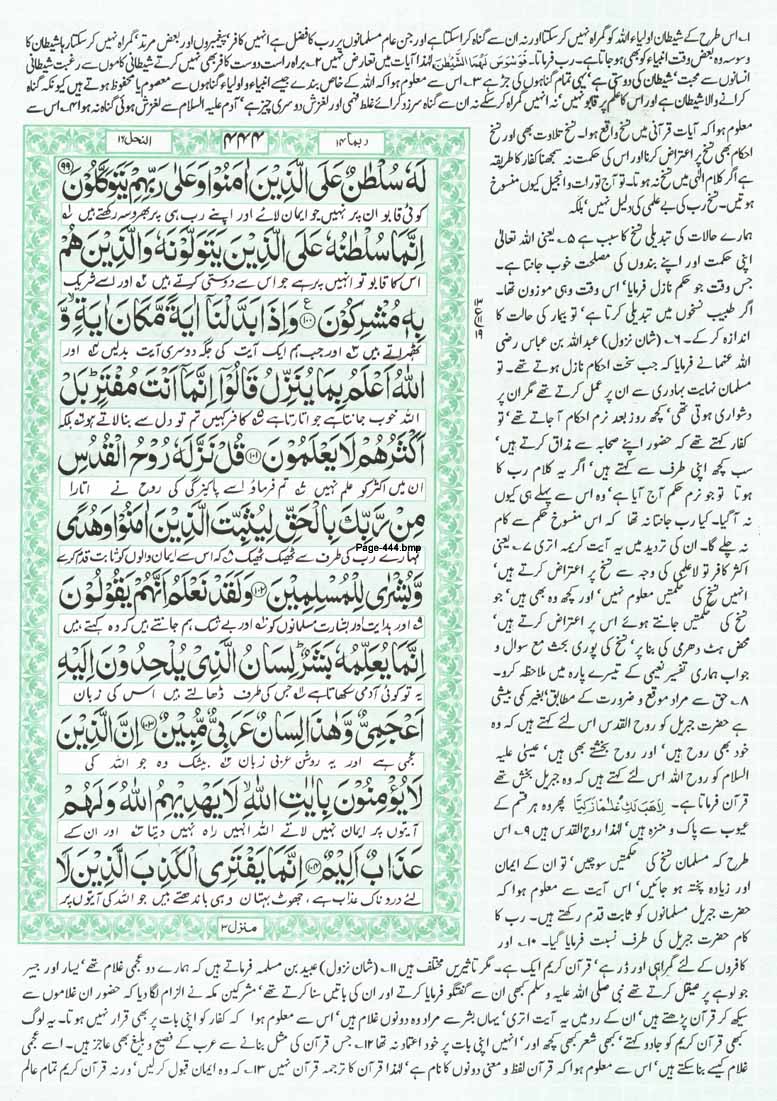 ۱۔ اس طرح کے شیطان اولیاء اللہ کو گمراہ نہیں کر سکتا اور نہ ان سے گناہ کرا سکتا ہے اور جن عام مسلمانوں پر رب کا فضل ہے انہیں کافر پیغمبروں اور بعض مرتد گمراہ نہیں کر سکتا رہا شیطان کا
وسوسہ وہ بعض وقت انبیاء کو بھی ہو جاتا ہے۔ رب فرماتا۔ فَوَسْوَسَ لَهُمَا الشَّيْطٰنُ لہٰذا آیات میں تعارض نہیں ۲۔ براہ راست دوست کافر بھی نہیں کرتے شیطانی کاموں سے رغبت شیطانی
انسانوں سے محبت' شیطان کی دوستی ہے' یہی تمام گناہوں کی جڑ ہے ۳۔ اس سے معلوم ہوا کہ اللہ کے خاص بندے جیسے انبیاء و اولیاء گناہوں سے معصوم یا محفوظ ہوتے ہیں کیونکہ گناہ
کرانے والا شیطان ہے اور اس کا علم پر قابو نہیں' نہ انہیں گمراہ کر سکے نہ ان سے گناہ سرزد کرائے غلط فہمی اور لغزش دوسری چیز ہے' آدم علیہ السلام سے لغزش ہوئی گناہ نہ ہوا ۴۔ اس سے
معلوم ہوا کہ آیات قرآنی میں نسخ واقع ہوا۔ نسخ تلاوت بھی اور نسخ
احکام بھی نسخ پر اعتراض کرنا اور اس کی حکمت نہ سمجھنا کفار کا طریقہ
ہے اگر کلام الٰہی میں نسخ نہ ہوتا۔ تو آج تورات و انجیل کیوں منسوخ
ہوتیں۔ نسخ رب کی بے علمی کی دلیل نہیں' بلکہ
ہمارے حالات کی تبدیلی نسخ کا سبب ہے ۵۔ یعنی اللہ تعالیٰ
اپنی حکمت اور اپنے بندوں کی مصلحت خوب جانتا ہے۔
جس وقت جو حکم نازل فرمایا' اس وقت وہی موزون تھا۔
اگر طبیب نسخوں میں تبدیلی کرتا ہے' تو بیمار کی حالت کا
اندازہ کر کے۔ ۶۔ (شان نزول) عبداللہ بن عباس رضی
اللہ عنہما نے فرمایا کہ جب سخت احکام نازل ہوتے تھے۔ تو
مسلمان نہایت بہادری سے ان پر عمل کرتے تھے مگر ان پر
دشواری ہوتی تھی' کچھ روز بعد نرم احکام آ جاتے تھے' تو
کفار کہتے تھے کہ حضور اپنے صحابہ سے مذاق کرتے ہیں'
سب کچھ اپنی طرف سے کہتے ہیں' اگر یہ کلام رب کا
ہوتا تو جو نرم حکم آج آیا ہے' وہ اس سے پہلے ہی کیوں
نہ آ گیا۔ کیا رب جانتا نہ تھا کہ اس منسوخ حکم سے کام
نہ چلے گا۔ ان کی تردید میں یہ آیت کریمہ اتری ۷۔ یعنی
اکثر کافر تو لاعلمی کی وجہ سے نسخ پر اعتراض کرتے ہیں'
انہیں نسخ کی حکمتیں معلوم نہیں' اور کچھ وہ بھی ہیں' جو
نسخ کی حکمتیں جانتے ہوئے اس پر اعتراض کرتے ہیں'
محض ہٹ دھرمی کی بنا پر' نسخ کی پوری بحث مع سوال و
جواب ہماری تفسیر نعیمی کے تیسرے پارہ میں ملاحظہ کرو۔
۸۔ حق سے مراد موقع و ضرورت کے مطابق بغیر کمی بیشی
ہے حضرت جبریل کو روح القدس اس لئے کہتے ہیں کہ وہ
خود بھی روح ہیں' اور روح بخشتے بھی ہیں' عیسیٰ علیہ
السلام کو روح اللہ اس لئے کہتے ہیں کہ وہ جبریل بخش تھے
قرآن فرماتا ہے۔ لِاَهَبَ لَكِ غُلٰمًا زَكِيًّا پھر وہ ہر قسم کے
عیوب سے پاک و منزہ ہیں' لہٰذا روح القدس ہیں ۹۔ اس
طرح کہ مسلمان نسخ کی حکمتیں سوچیں' تو ان کے ایمان
اور زیادہ پختہ ہو جائیں' اس آیت سے معلوم ہوا کہ
حضرت جبریل مسلمانوں کو ثابت قدم رکھتے ہیں۔ رب کا
کام حضرت جبریل کی طرف نسبت فرمایا گیا۔ ۱۰۔ اور
ربما ۱۴
۴۴۴
النحل ۱۶
لَهٗ سُلْطٰنٌ عَلَى الَّذِيْنَ اٰمَنُوْا وَعَلٰى رَبِّهِمْ يَتَوَكَّلُوْنَ ۹۹
کوئی قابو ان پر نہیں جو ایمان لائے اور اپنے رب ہی پر بھروسہ رکھتے ہیں ۱
اِنَّمَا سُلْطٰنُهٗ عَلَى الَّذِيْنَ يَتَوَلَّوْنَهٗ وَالَّذِيْنَ هُمْ
اس کا قابو تو انہیں پر ہے جو اس سے دوستی کرتے ہیں ۲ اور اسے شریک
بِهٖ مُشْرِكُوْنَ ۱۰۰ ع وَاِذَا بَدَّلْنَاۤ اٰيَةً مَّكَانَ اٰيَةٍ وَّ
ٹھہراتے ہیں ۳ اور جب ہم ایک آیت کی جگہ دوسری آیت بدلیں ۴ اور
اللّٰهُ اَعْلَمُ بِمَا يُنَزِّلُ قَالُوْۤا اِنَّمَاۤ اَنْتَ مُفْتَرٍ بَلْ
اللہ خوب جانتا ہے جو اتارتا ہے ۵ کافر کہیں تم تو دل سے بنا لاتے ہو ۶ بلکہ
اَكْثَرُهُمْ لَا يَعْلَمُوْنَ ۱۰۱ قُلْ نَزَّلَهٗ رُوْحُ الْقُدُسِ
ان میں اکثر کو علم نہیں ۷ تم فرماؤ اسے پاکیزگی کی روح نے اتارا
مِنْ رَّبِّكَ بِالْحَقِّ لِيُثَبِّتَ الَّذِيْنَ اٰمَنُوْا وَهُدًى
Page-444.bmp
تمہارے رب کی طرف سے ٹھیک ٹھیک ۸ کہ اس سے ایمان والوں کو ثابت قدم کرے
وَّبُشْرٰى لِلْمُسْلِمِيْنَ ۱۰۲ وَلَقَدْ نَعْلَمُ اَنَّهُمْ يَقُوْلُوْنَ
۹ اور ہدایت اور بشارت مسلمانوں کو ۱۰ اور بے شک ہم جانتے ہیں کہ وہ کہتے ہیں
اِنَّمَا يُعَلِّمُهٗ بَشَرٌ لِسَانُ الَّذِيْ يُلْحِدُوْنَ اِلَيْهِ
یہ تو کوئی آدمی سکھاتا ہے ۱۱ جس کی طرف ڈھالتے ہیں اس کی زبان
اَعْجَمِيٌّ وَّهٰذَا لِسَانٌ عَرَبِيٌّ مُّبِيْنٌ ۱۰۳ اِنَّ الَّذِيْنَ
عجمی ہے اور یہ روشن عربی زبان ۱۲ بیشک وہ جو اللہ کی
لَا يُؤْمِنُوْنَ بِاٰيٰتِ اللّٰهِ لَا يَهْدِيْهِمُ اللّٰهُ وَلَهُمْ
آیتوں پر ایمان نہیں لاتے اللہ انہیں راہ نہیں دیتا ۱۳ اور ان کے
عَذَابٌ اَلِيْمٌ ۱۰۴ اِنَّمَا يَفْتَرِي الْكَذِبَ الَّذِيْنَ لَا
لئے دردناک عذاب ہے، جھوٹ بہتان وہی باندھتے ہیں جو اللہ کی آیتوں پر
منزل ۳
کافروں کے لئے گمراہی اور ڈر ہے' قرآن کریم ایک ہے۔ مگر تاثیریں مختلف ہیں ۱۱۔ (شان نزول) عبید بن مسلمہ فرماتے ہیں کہ ہمارے دو عجمی غلام تھے' یسار اور جبیر
جو لوہے پر صیقل کرتے تھے نبی صلی اللہ علیہ وسلم کبھی ان سے گفتگو فرمایا کرتے اور ان کی باتیں سنا کرتے تھے' مشرکین مکہ نے الزام لگا دیا کہ حضور ان غلاموں سے
سیکھ کر قرآن پڑھتے ہیں' ان کے رد میں یہ آیت اتری' یہاں بشر سے مراد وہ دونوں غلام ہیں' اس سے معلوم ہوا کہ کفار کو اپنی بات پر بھی قرار نہیں ہوتا۔ یہ لوگ
کبھی قرآن کریم کو جادو کہتے' کبھی شعر' کبھی کچھ اور' انہیں اپنی بات پر خود اعتماد نہ تھا ۱۲۔ جس قرآن کی مثل بنانے سے عرب کے فصیح و بلیغ بھی عاجز ہیں۔ اسے عجمی
غلام کیسے بنا سکتے ہیں' اس سے معلوم ہوا کہ قرآن لفظ و معنی دونوں کا نام ہے' لہٰذا قرآن کا ترجمہ قرآن نہیں ۱۳۔ کہ وہ ایمان قبول کر لیں' ورنہ قرآن کریم تمام عالم